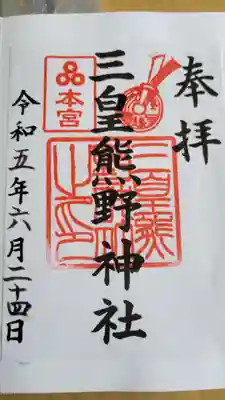 奉拝
三皇熊野神社
本宮
令和五年六月二十四日